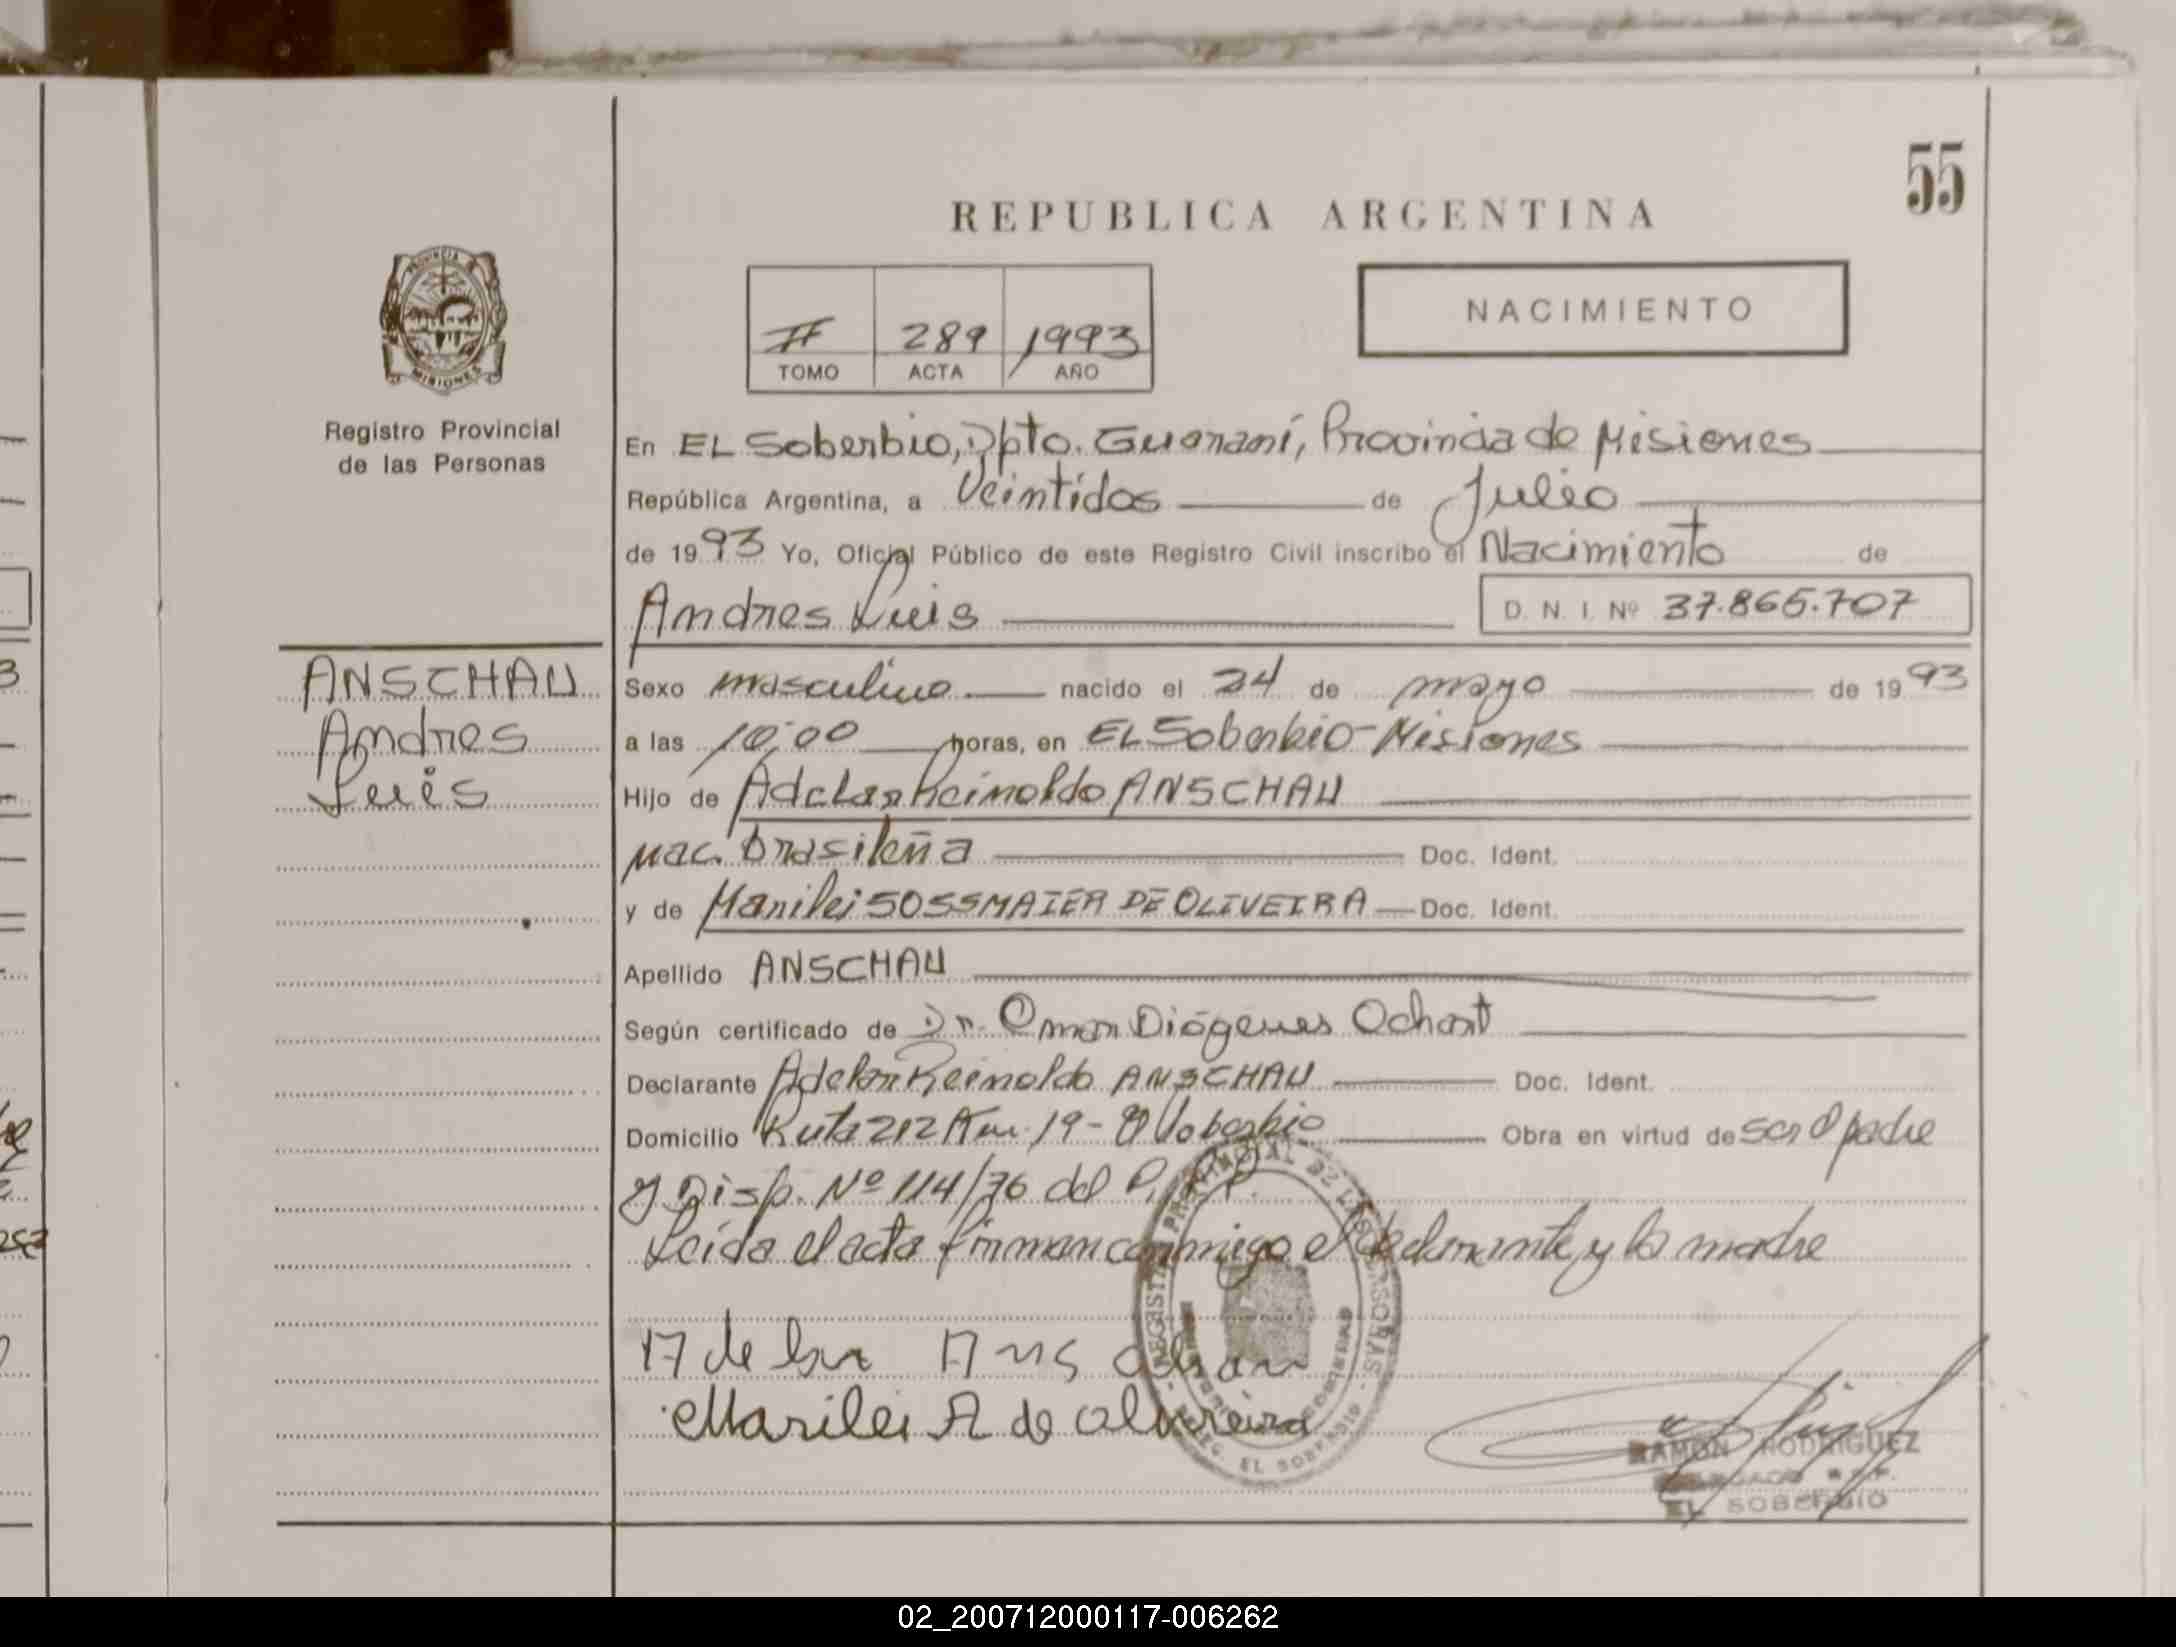 55
REPUBLICA ARGENTINA
PROVINCIA DE
MISIONES
Registro Provincial
de las Personas
II 289 1993
TOMO ACTA AÑO
NACIMIENTO
En EL Soberbio, Dpto. Guaraní, Provincia de Misiones
República Argentina, a Veintidos de Julio
de 1993 Yo, Oficial Público de este Registro Civil inscribo el Nacimiento de
Andres Luis D. N. I. Nº 37.865.707
ANSCHAU
Andres
Luis
Sexo masculino nacido el 24 de mayo de 1993
a las 10,00 horas, en EL Soberbio-Misiones
Hijo de Adelar Reinoldo ANSCHAU
nac. brasileña Doc. Ident.
y de Marilei SOSSMAIER DE OLIVEIRA Doc. Ident.
Apellido ANSCHAU
Según certificado de Dr. Omar Diógenes Ochart
Declarante Adelar Reinoldo ANSCHAU Doc. Ident.
Domicilio Ruta 212 Km. 19 - El Soberbio Obra en virtud de ser el padre
y Disp. Nº 114/76 del R.P.P.
Leída el acta firman conmigo el declarante y la madre
Adelar Anschau
Marilei A de Oliveira
REGISTRO PROVINCIAL DE LAS PERSONAS
DELEG. EL SOBERBIO
RAMON RODRIGUEZ
EL SOBERBIO
02_200712000117-006262